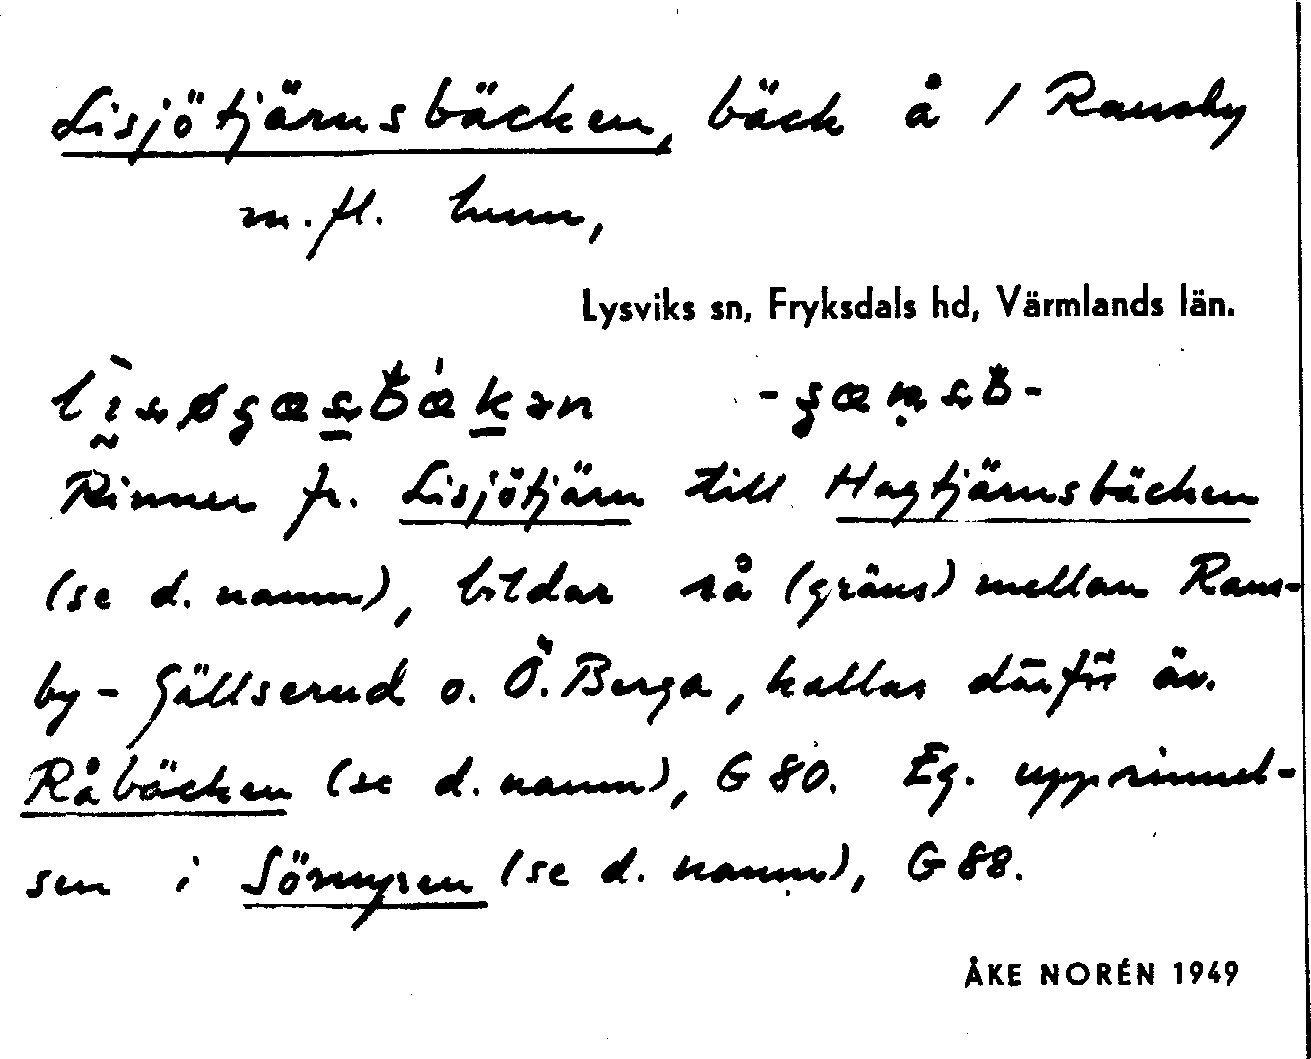 Lisjötjärnsbäcken, bäck å / Ransby
m.fl. hmn,
Lysviks sn, Fryksdals hd, Värmlands län.
Rinner fr. Lisjötjärn till Hagtjärnsbäcken
(se d. namn), bildar rå (gräns) mellan Rans-
by - Gällserud o. Ö. Berga, kallas därför äv.
Råbäcken (se d. namn), G 80. Eg. upprinnel-
sen i Sömyren (se d. namn), G 88.
ÅKE NORÉN 1949